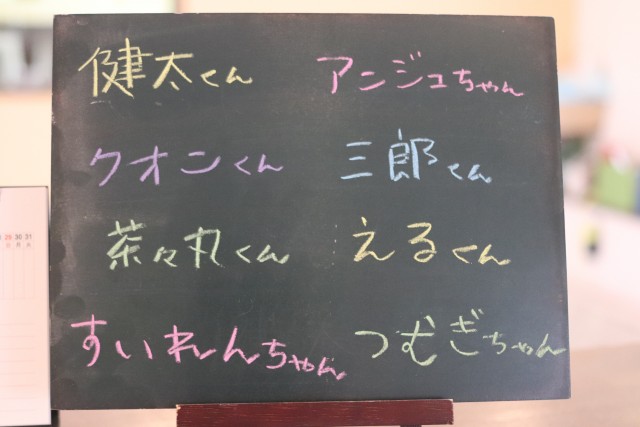 健太くん アンジュちゃん
クオンくん 三郎くん
茶々丸くん えるくん
すいれんちゃん つむぎちゃん
29 30 31